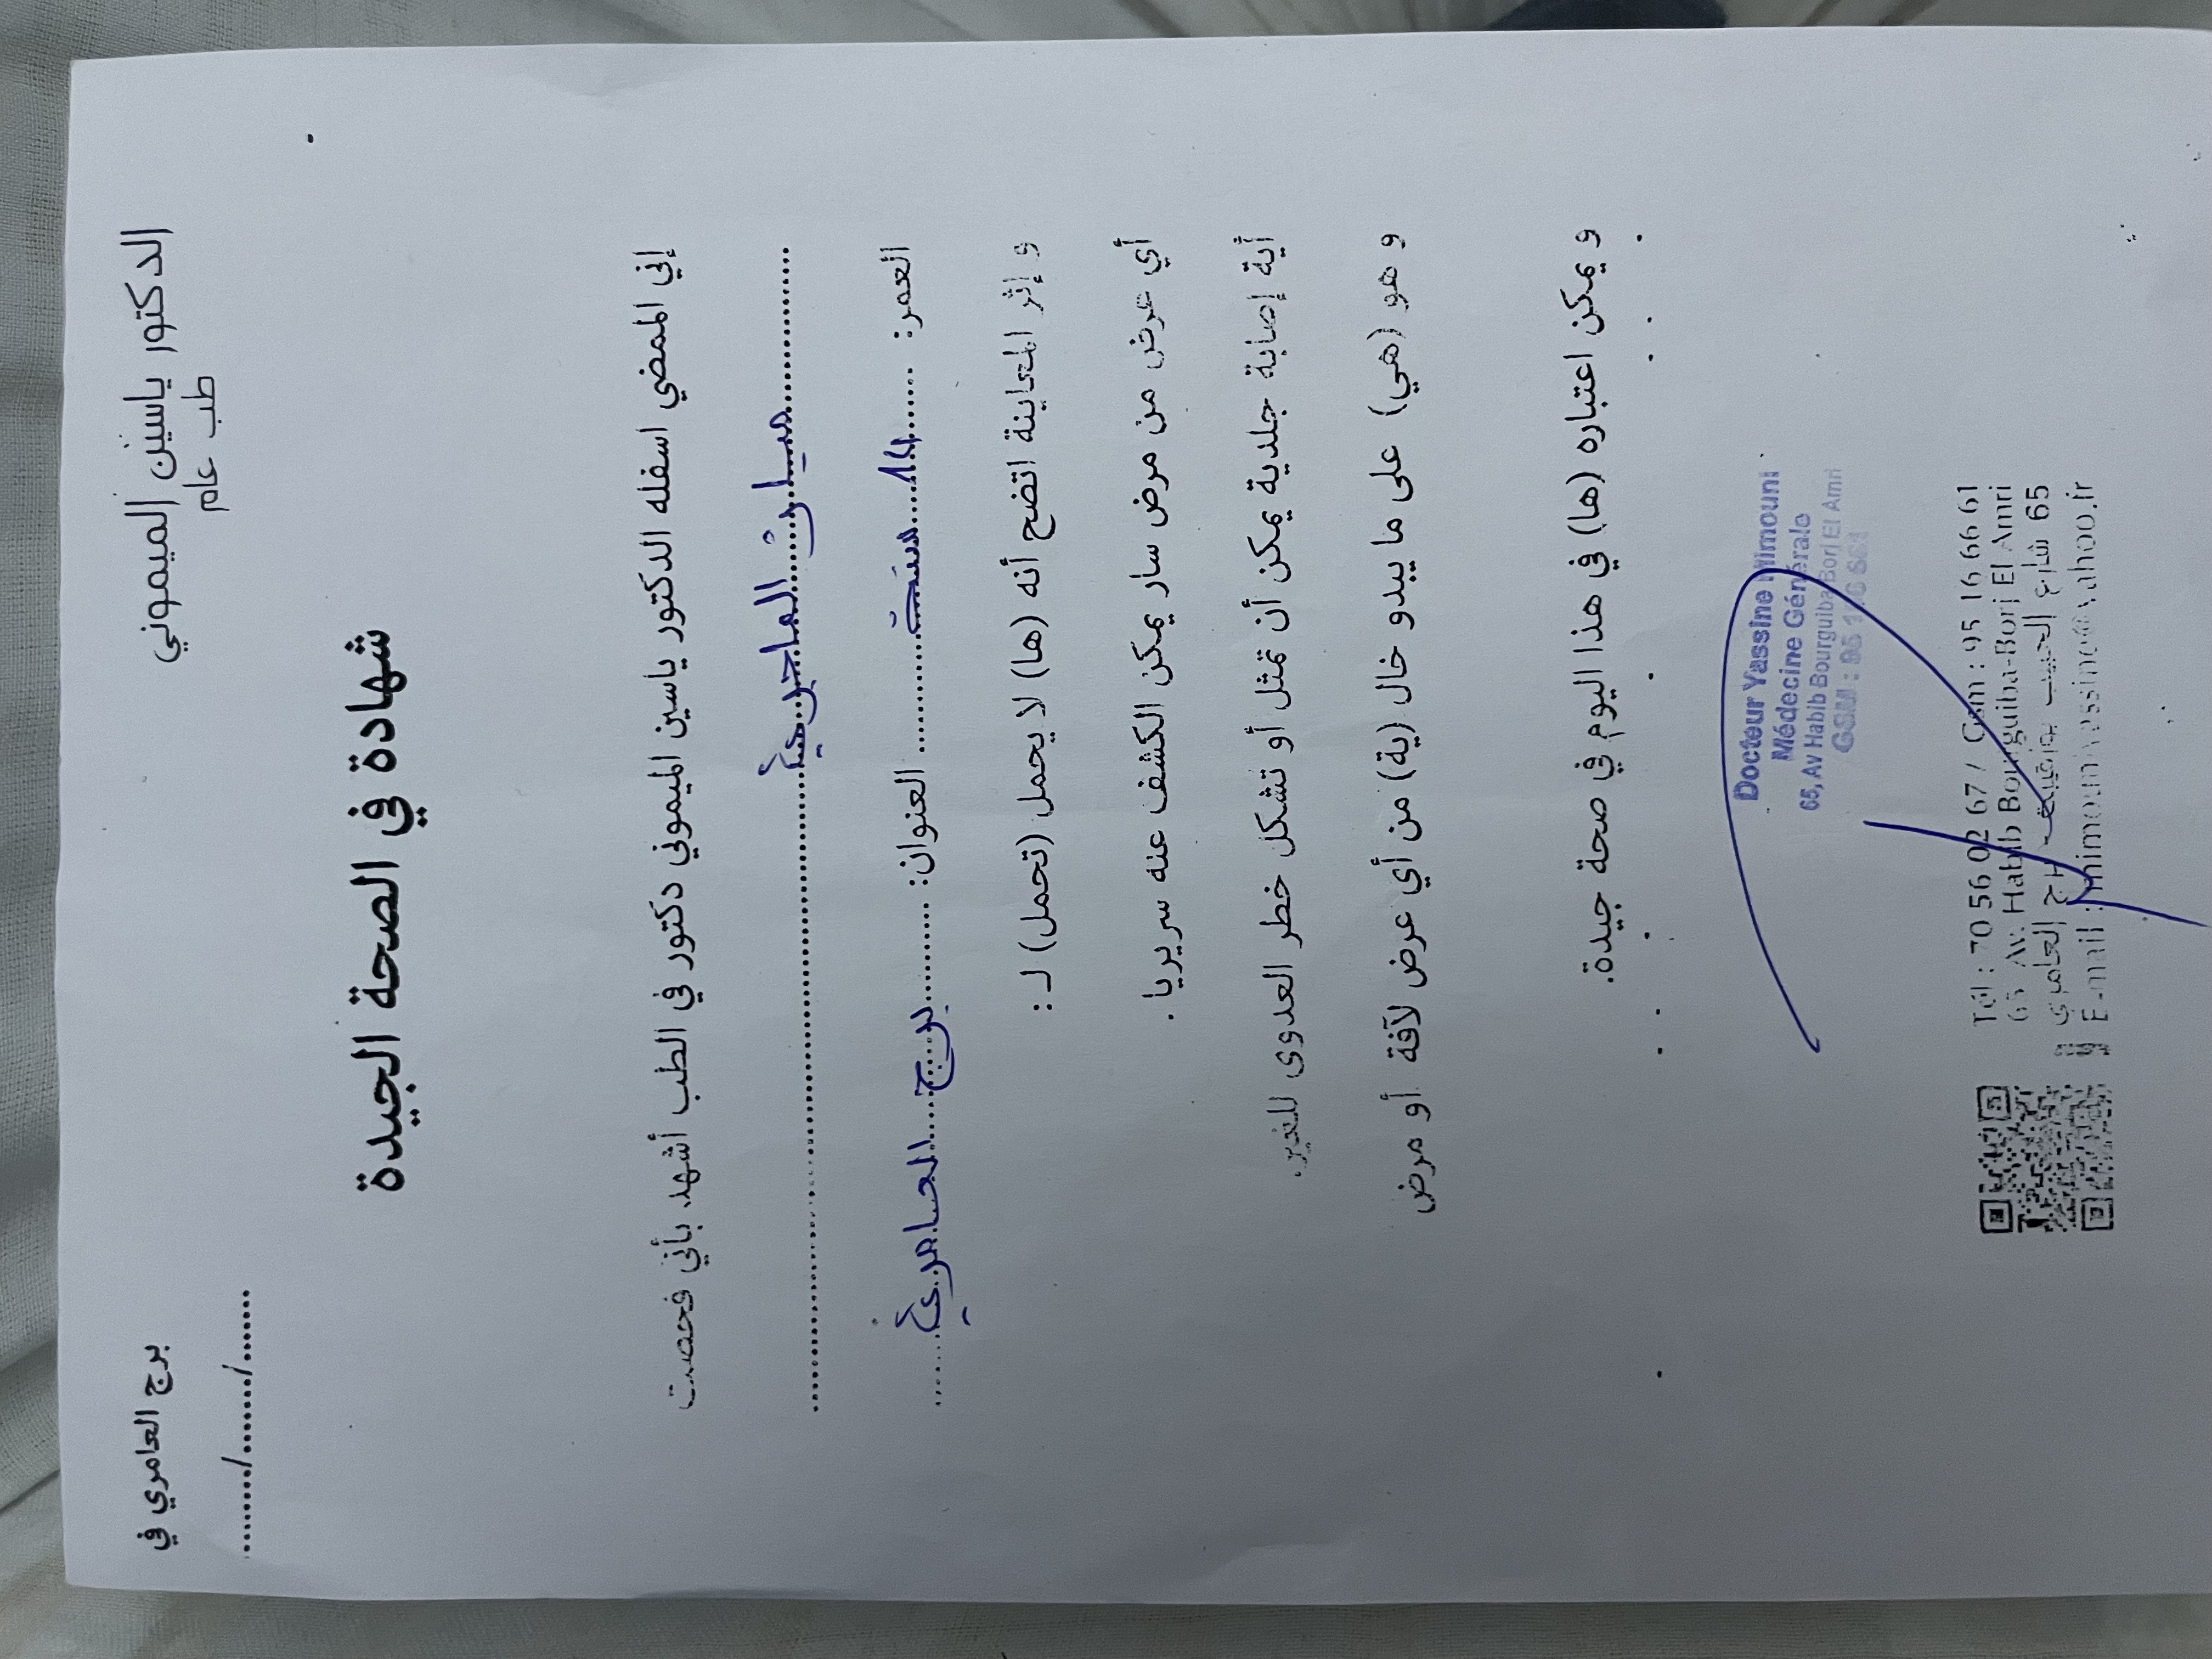 الدكتور ياسين الميموني
طب عام
برج العامري في
........./........./.........
شهادة في الصحة الجيدة
إني الممضي اسفله الدكتور ياسين الميموني دكتور في الطب أشهد بأني فحصت
الماجري
العمر: 14 سنة العنوان: برج العامري
و إثر المعاينة اتضح أنه (ها) لا يحمل (تحمل) لـ :
أي عرض من مرض سار يمكن الكشف عنه سريريا .
أية إصابة جلدية يمكن أن تمثل أو تشكل خطر العدوى للغير.
و هو (هي) على ما يبدو خال (ية) من أي عرض لآفة أو مرض
و يمكن اعتباره (ها) في هذا اليوم في صحة جيدة.
Docteur Yassine Mimouni
Médecine Générale
65, Av Habib Bourguiba Borj El Amri
GSM : 95 166 661
Tél : 70 56 02 67 / Gsm : 95 16 66 61
65 Av. Habib Bourguiba-Borj El Amri
65 شارع الحبيب بورقيبة برج العامري
E-mail :